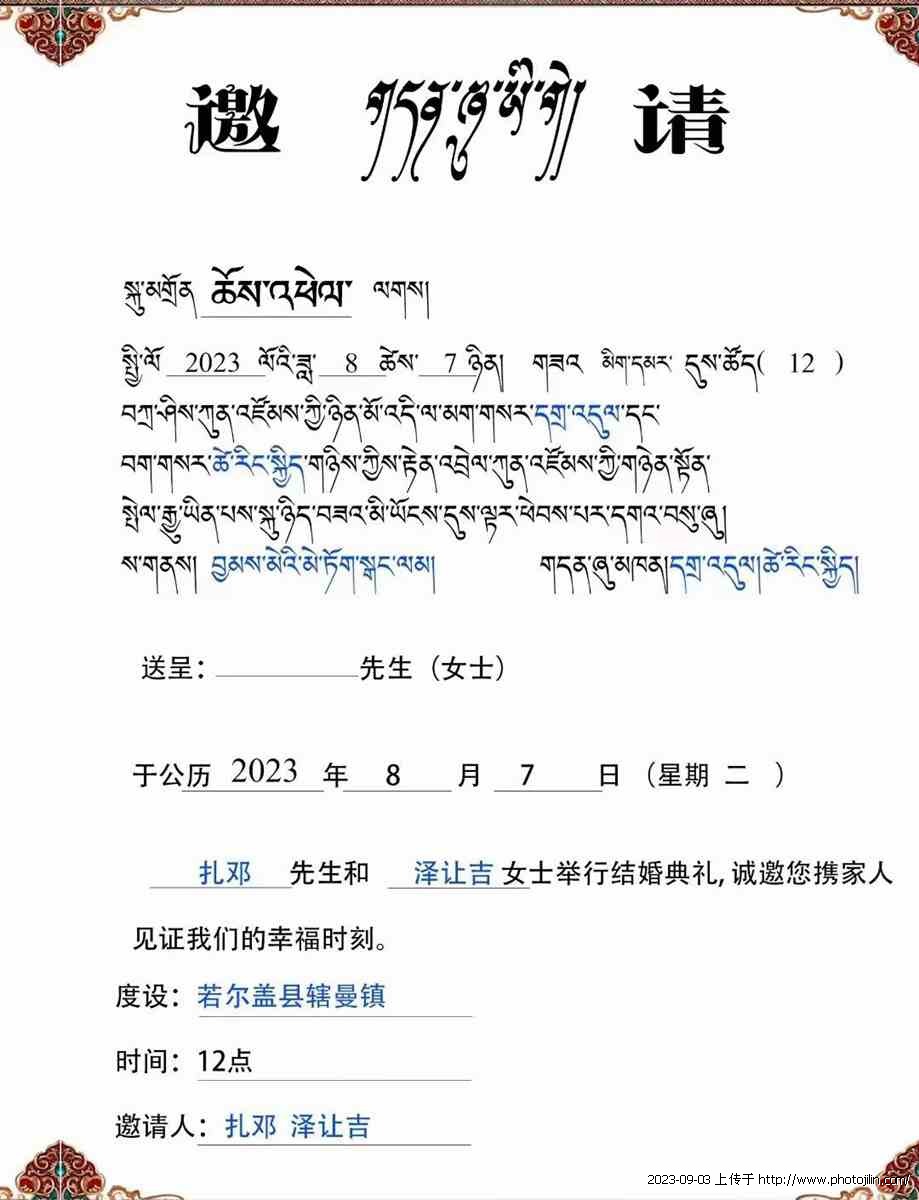 邀 གདན་ཞུ་ཡི་གེ། 请
སྐུ་མགྲོན ཆོས་འཕེལ་ ལགས།
སྤྱི་ལོ 2023 ལོའི་ཟླ་ 8 ཚེས་ 7 ཉིན། གཟའ མིག་དམར་ དུས་ཚོད( 12 )
བཀྲ་ཤིས་ཀུན་འཛོམས་ཀྱི་ཉིན་མོ་འདི་ལ་མག་གསར་དགྲ་འདུལ་དང་
བག་གསར་ཚེ་རིང་སྐྱིད་གཉིས་ཀྱིས་རྟེན་འབྲེལ་ཀུན་འཛོམས་ཀྱི་གཉེན་སྟོན་
སྤེལ་རྒྱུ་ཡིན་པས་སྐུ་ཉིད་བཟའ་མི་ཡོངས་དུས་ལྟར་ཕེབས་པར་དགའ་བསུ་ཞུ།
ས་གནས། བྱམས་མེའི་མེ་ཏོག་སྒང་ལམ། གདན་ཞུ་མཁན།དགྲ་འདུལ།ཚེ་རིང་སྐྱིད།
送呈： 先生（女士）
于公历 2023 年 8 月 7 日 （星期 二 ）
扎邓 先生和 泽让吉 女士举行结婚典礼, 诚邀您携家人
见证我们的幸福时刻。
度设：若尔盖县辖曼镇
时间：12点
邀请人：扎邓 泽让吉
2023-09-03 上传于 http://www.photojilin.com/